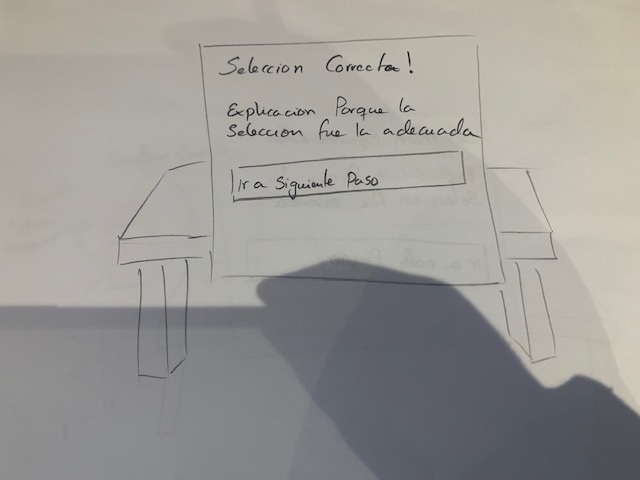 Seleccion Correcta!
Explicacion Porque la
Seleccion fue la adecuada
Ir a Siguiente Paso